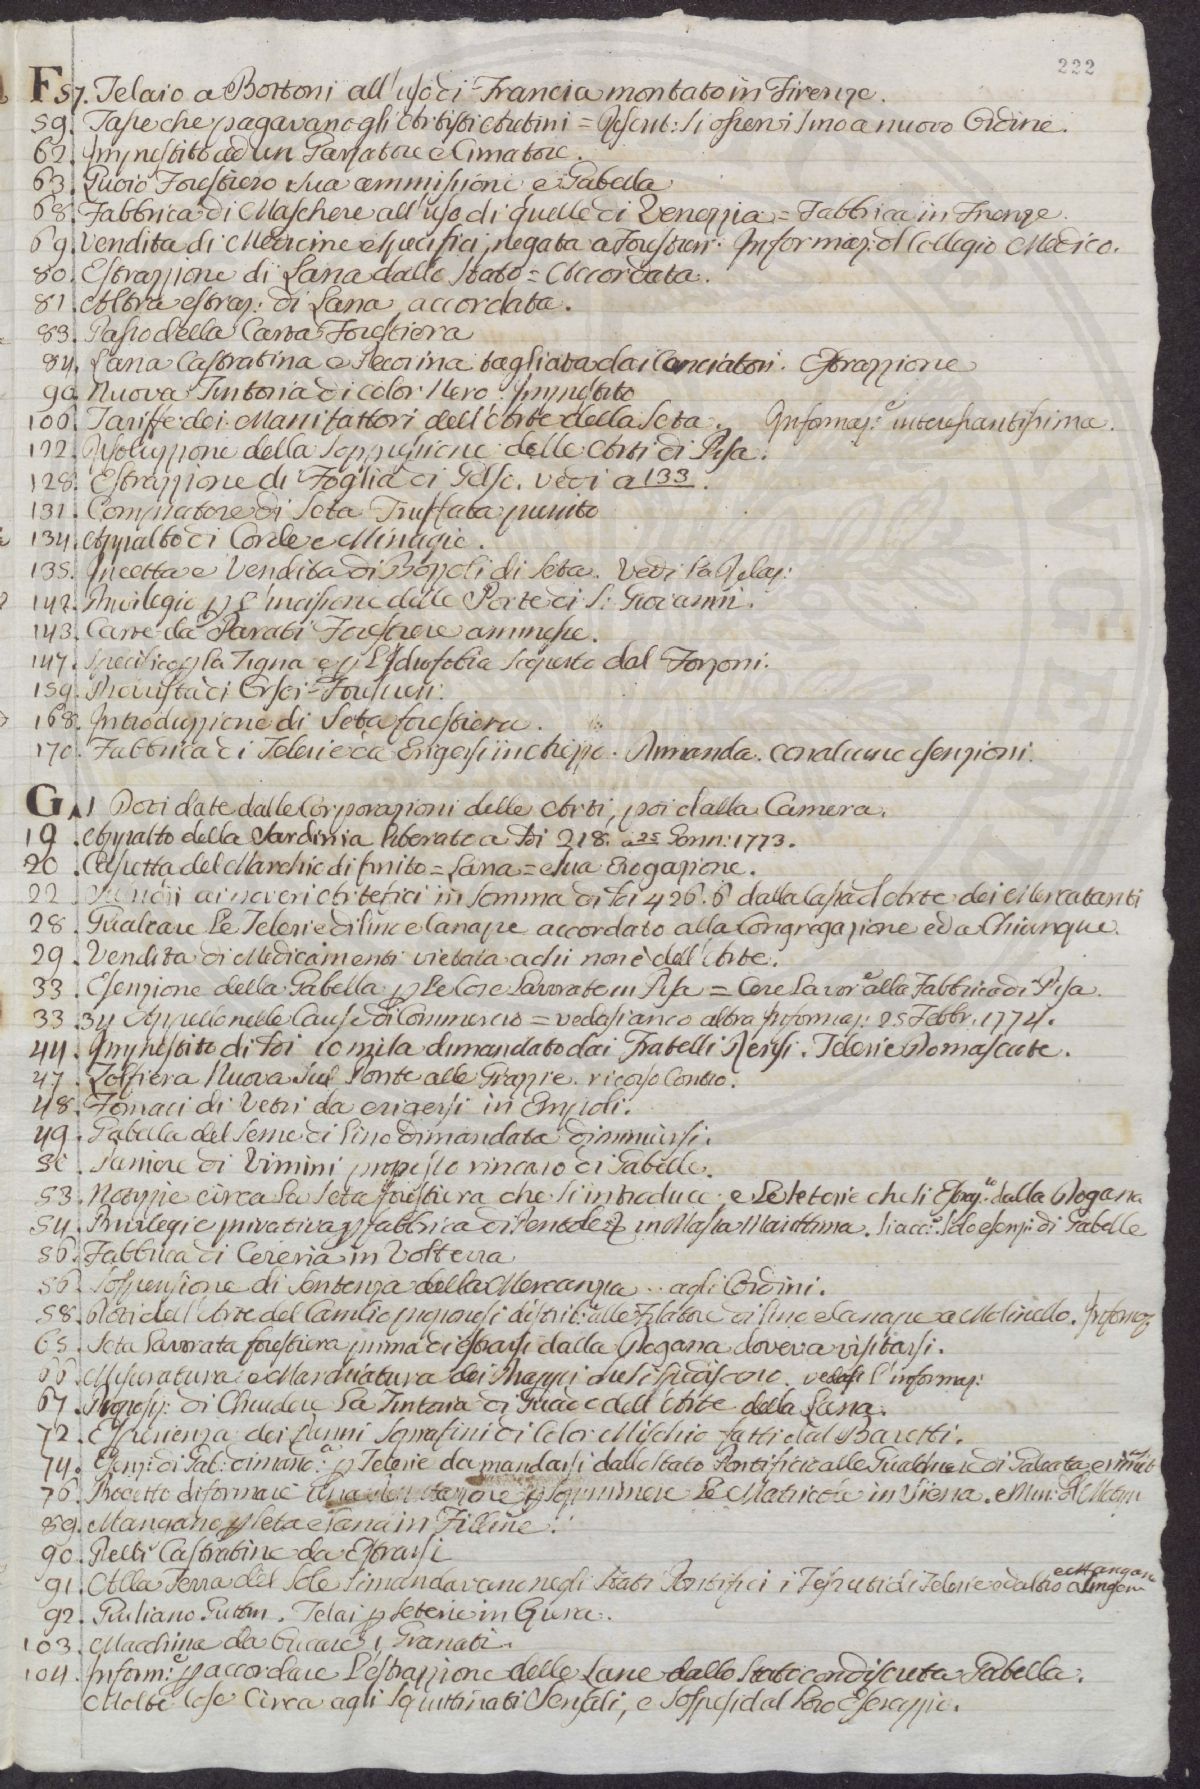 222
F 57. Telaio a Bottoni all'uso di Francia montato in Firenze.
59. Tasse che pagavano gli Artisti Aretini = Rescrit: si osservi sino a nuovo Ordine.
62. Imprestito ad un Parsatore e Cimatore.
63. Quoio Forestiero sua ammissione e Gabella
68. Fabbrica di Maschere all'uso di quelle di Venezzia = Fabbrica in Firenze.
69. Vendita di Medicine especifici negata a Forestieri. Informaz: del Collegio Medico.
80. Estrazzione di Lana dallo Stato = Accordata.
81. Altra estraz: di Lana accordata.
83. Passo della Carta Forestiera
84. Lana Castratina e Pecorina tagliata dai Conciatori. Estrazzione
90. Nuova Tintoria di color Nero. Imprestito
106. Tariffe dei Manifattori dell'Arte della Seta. Informaz:e interessantissima.
122. Risoluzzione della soppressione delle Arti di Pisa.
128. Estrazzione di Foglia di Gelso. vedi a 133.
131. Compratore di Seta Truffata punito
134. Appalto di Corde e Minugie.
135. Incetta e Vendita di Bozzoli di Seta. Vedi la Relaz:
142. Privilegio p l'incisione delle Porte di S. Giovanni.
143. Carte da Parati Forestiere ammesse.
147. Specifico p la Tigna e p l'Idrofobia scoperto dal Forzoni.
159. Provvista di Orsoi Forestieri.
168. Introduzzione di Seta forestiera.
170. Fabbrica di Telerie da Erigersi in Arezzo. Dimanda con alcune esenzioni.
G. 1 Doti date dalle Corporazioni delle Arti, poi dalla Camera.
19. Appalto della Sardinia liberato a Sdi 218. a 25 Genn: 1773.
20. Cassetta del Marchio di finito = Lana = e sua Erogazione.
22. ai poveri Artefici in somma di Sdi 426. 6 dalla Cassa dl Arte dei Mercatanti
28. Gualcare le Telerie di lino e Canape accordato alla Congregazione ed a Chiunque.
29. Vendita di Medicamenti vietata a chi non è dell'Arte.
33. Esenzione della Gabella p le Cere Lavorate in Pisa = Cere Lavor:e alla Fabbrica di Pisa.
33. 34 Appello nelle Cause di Commercio = vedasi anco altra Informaz: 25 Febbr: 1774.
44. Imprestito di Sdi 10 mila dimandato dai Fratelli Rensi. Telerie Domascate.
47. Zolfiera Nuova sul Ponte alle Grazzie. ricorso Contro.
48. Fornaci di Vetri da erigersi in Empoli.
49. Gabella del Seme di Lino dimandata diminuirsi.
50. Paniere di Vimini proposto rincaro di Gabelle.
53. Notizzie circa la Seta forestiera che s'introduce e le Seterie che si Estraz:o dalla Dogana
54. Privilegio privativa p fabbrica di Pentole in Massa Marittima. si acc:o solo esenz: di Gabelle
56. Fabbrica di Cereria in Volterra
56. Sospensione di Sentenza della Mercanzia .. agli Ordini.
58. Doti dell'Arte del Cambio proponesi distrib:e alle Filatore di lino e Canape a Molinello. Informaz
65. Seta Lavorata forestiera prima di Estrarsi dalla Dogana doveva visitarsi.
66. Misuratura e Marchiatura dei Drappi che si spediscono. vedasi l'informaz:
67. Progesi: di Chiudere la Tintoria di Guado dell'Arte della Lana.
72. Esperienza dei Panni Soprafini di Color Mischio fatti dal Baretti.
74. Esenz: di Gab: dimand:a p Telerie da mandarsi dallo Stato Pontificio alle Gualchiere di Galeata
76. Progetto di formare Una p sopprimere le Matricole in Siena. e
89. Mangano p Seta e Lana in Filline.
90. Pelli Castratine da Estrarsi
91. Alla Terra del Sole si mandavano negli Stati Pontifici i Tessuti di Telerie ed altro a tingere e Mangano
92. Giuliano Telai p Seterie in
103. Macchina da bucare i Granati.
104. Inform:e p accordare l'estrazzione delle Lane dallo Stato con discreta Gabella.
Molte Cose Circa agli Squittinati Sensali, e Sospesi dal loro Eserzizzio.